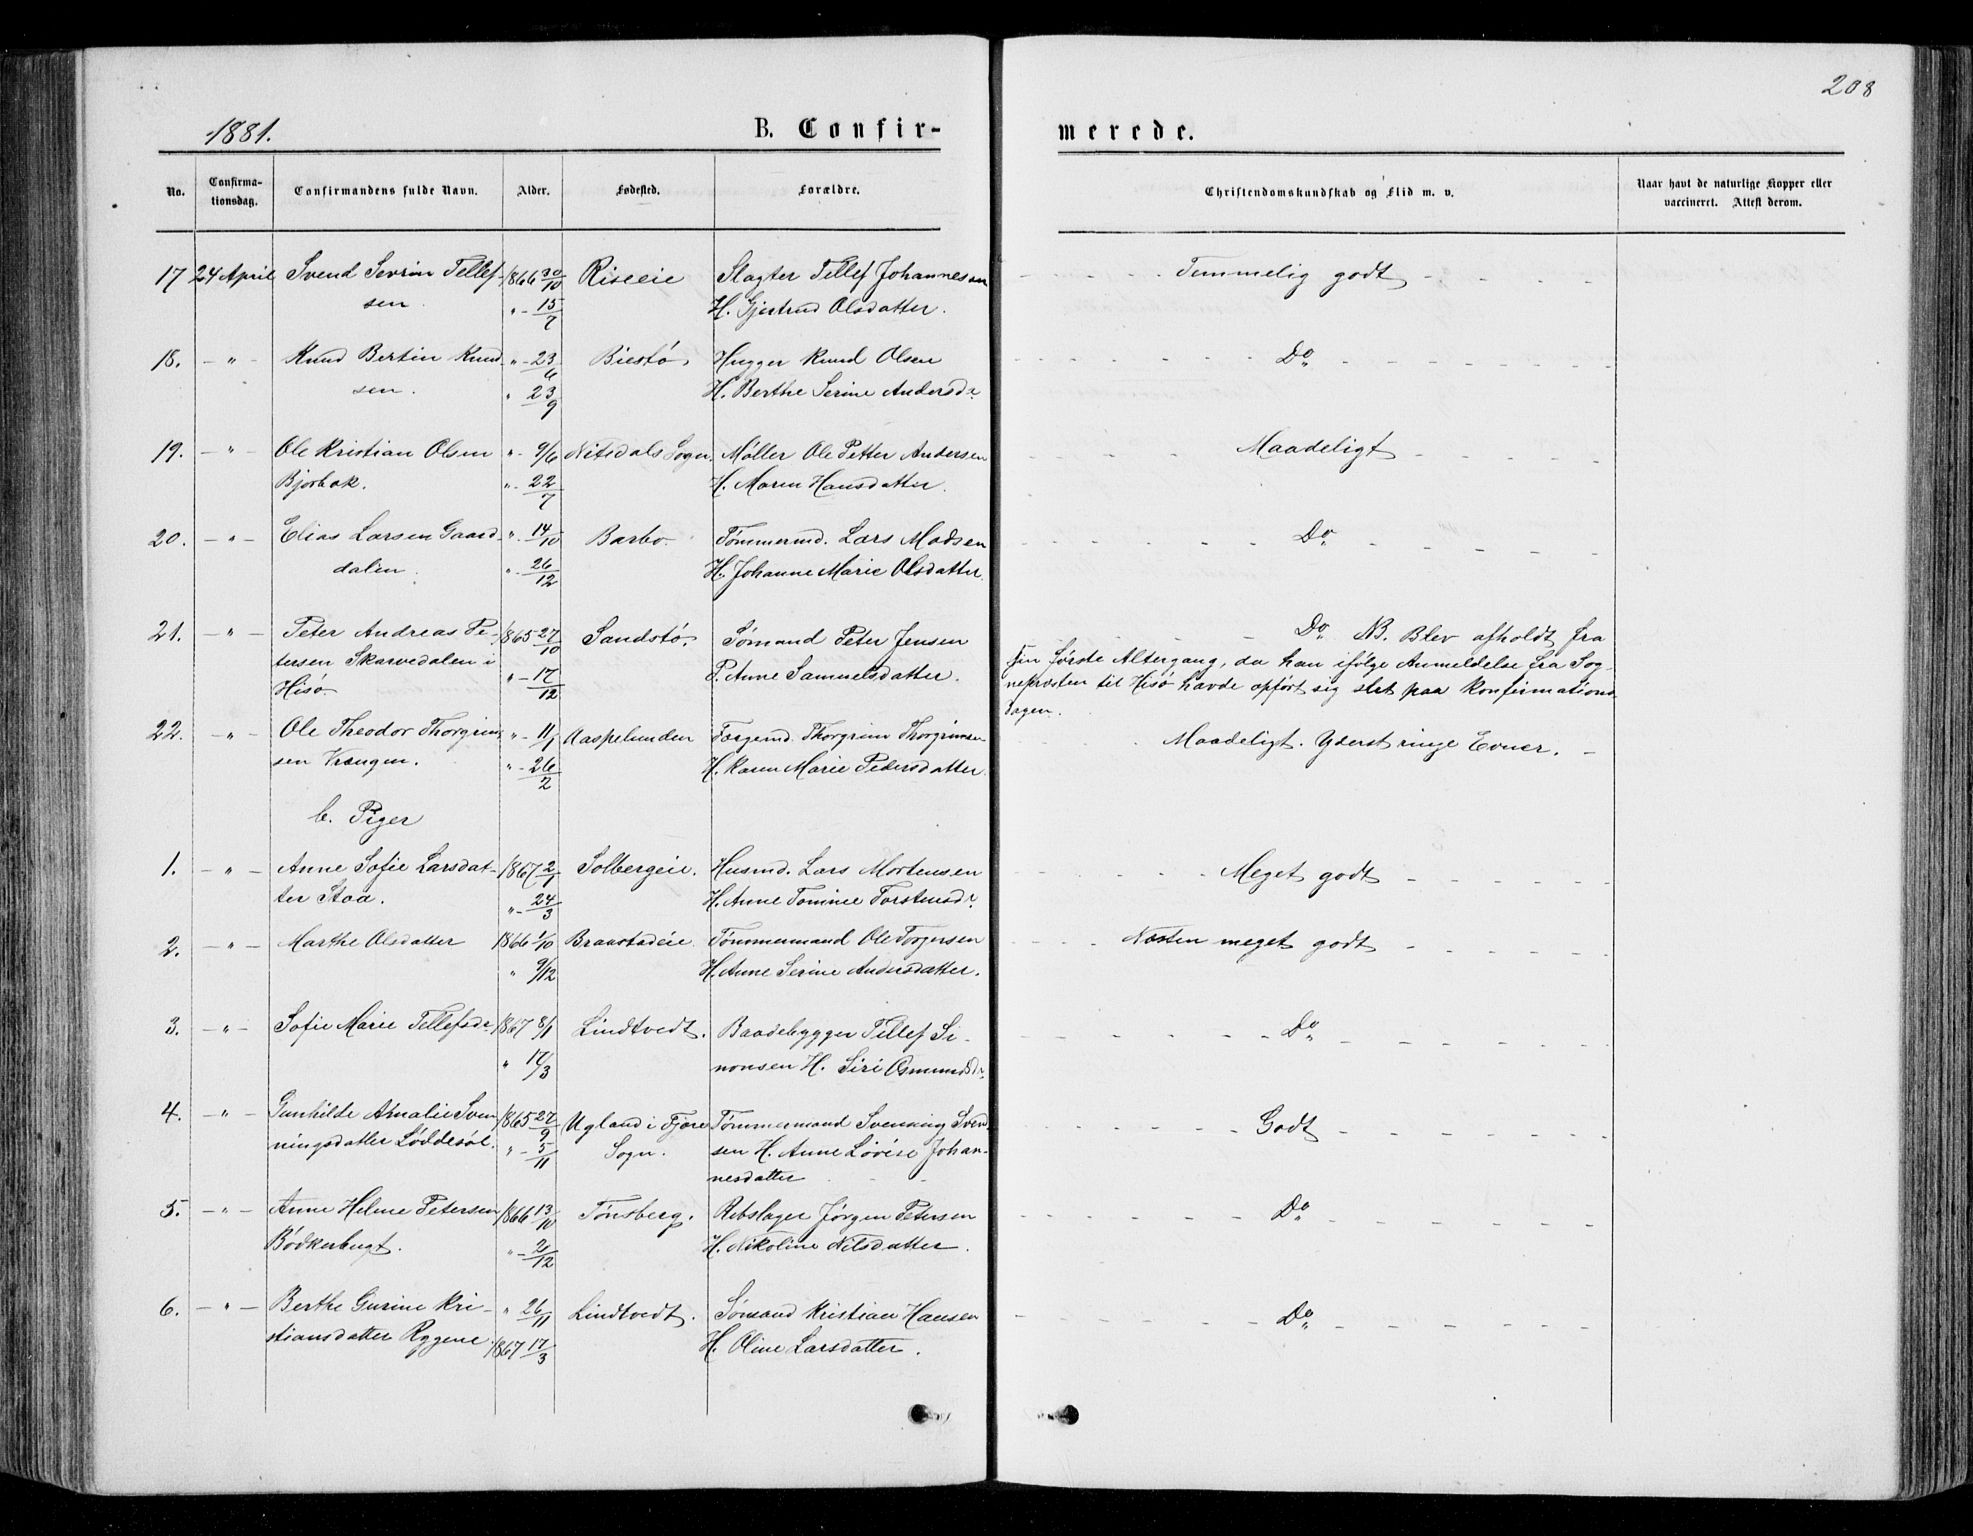 208
1881.
B. Confir-
merede.
No.
Confirma-
tionsdag.
Confirmandens fulde Navn.
Alder.
Fødested.
Forældre.
Christendomskundskab og Flid m. v.
Naar havt de naturlige Kopper eller
vaccineret. Attest derom.
17 24 April Svend Sevrin Tellef- 1866 30/10 Riseeie Slagter Tellef Johannesen Temmelig godt
sen. " - 15/7 H. Gjertrud Olsdatter.
18. - " - Knud Bertin Knud- " - 23/6 Biestø. Hugger Knud Olsen Do
sen. " 23/9 H. Berthe Serine Andersdr.
19. - " - Ole Kristian Olsen " - 9/6 Nitedals Sogn. Møller Ole Petter Andersen Maadeligt
Bjorbæk. " - 22/7 H. Maren Hansdatter.
20. - " - Elias Larsen Gaard- " - 14/10 Barbo. Tømmermd. Lars Madsen Do
dalen. " - 26/12 H. Johanne Marie Olsdatter.
21. - " - Peter Andreas Pe- 1865 27/10 Sandstø. Sømand Peter Jensen Do NB. Blev afholdt fra
tersen Skarvedalen i " - 17/12 P. Anne Samuelsdatter. sin første Altergang, da han ifølge Anmeldelse fra Sog-
Hisø nepræsten til Hisø havde opført sig slet paa Konfirmations-
dagen.
22. - " - Ole Theodor Thorgrim- " - 11/1 Aaspelunden Færgemd. Thorgrim Thorgrimsen Maadeligt. Yderst ringe Evner.
sen Vrængen. " - 26/2 H. Karen Marie Pedersdatter.
b. Piger
1. - " - Anne Sofie Larsdat- 1867 2/1 Solbergeie. Husmd. Lars Mortensen Meget godt
ter Stoa. " - 24/3 H. Anne Tominee Torstensdr.
2. - " - Marthe Olsdatter 1866 1/10 Braastadeie. Tømmermand Ole Torjersen Næsten meget godt
" 9/12 H. Anne Serine Andersdatter.
3. - " - Sofie Marie Tellefsdr. 1867 8/1 Lindtvedt. Baadebygger Tellef Si- Do
" 17/3 monsen H. Siri Osmundsdr.
4. - " - Gunhilde Amalie Sven- 1865 27/9 Ugland i Fjære Tømmermand Svenning Svend- Godt
ningsdatter Løddesøl. " - 5/11 Sogn. sen H. Anne Lovise Johan-
nesdatter
5. - " - Anne Helene Petersen 1866 13/10 Tønsberg. Rebslager Jørgen Petersen Do
Bødkerbugt. " - 2/12 H. Nikoline Nilsdatter.
6. - " - Berthe Gurine Kri- " 26/11 Lindtvedt. Sømand Kristian Hansen Do
stiansdatter Rygene. 1867 17/3 H. Oline Larsdatter.